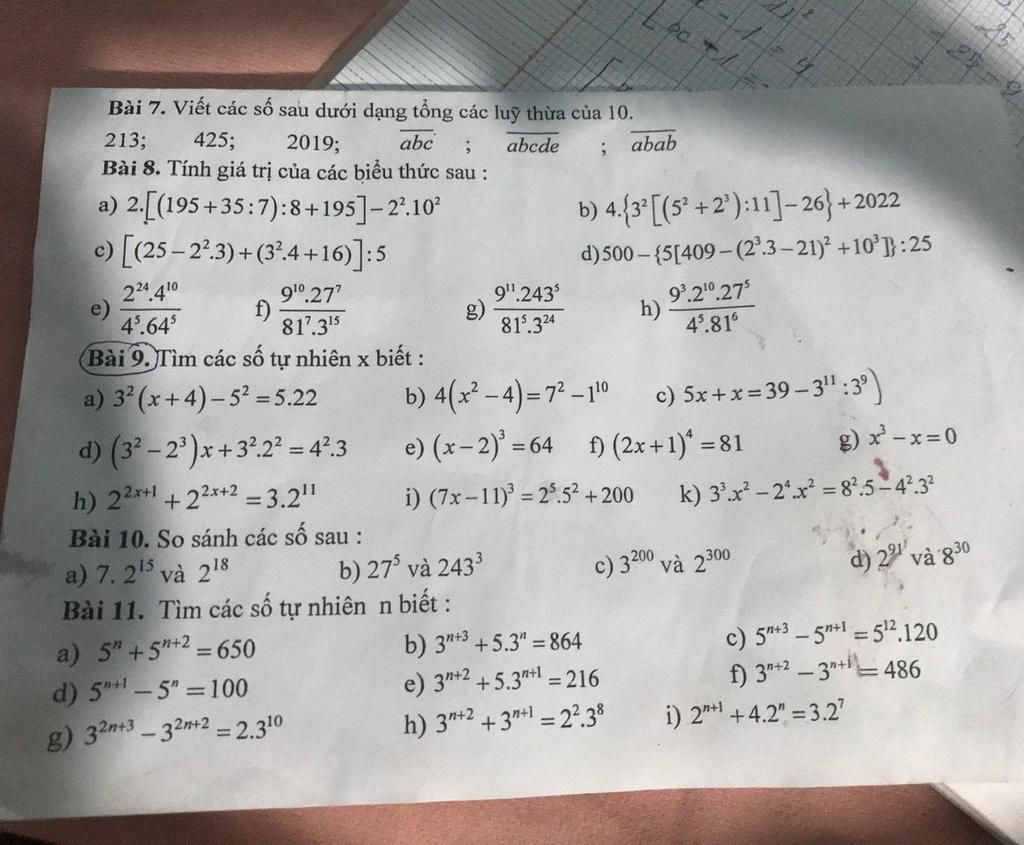 Bài 7. Viết các số sau dưới dạng tổng các luỹ thừa của 10.
213; 425; 2019; \(\overline{abc}\) ; \(\overline{abcde}\) ; \(\overline{abab}\)
Bài 8. Tính giá trị của các biểu thức sau :
a) 2.[(195+35:7):8+195]−2².10² b) 4.{3²[(5²+2³):11]−26}+2022
c) [(25−2².3)+(3².4+16)]:5 d)500−{5[409−(2³.3−21)²+10³]}:25
e) \(\frac{2^{24}.4^{10}}{4^5.64^5}\) f) \(\frac{9^{10}.27^7}{81^7.3^{15}}\) g) \(\frac{9^{11}.243^5}{81^5.3^{24}}\) h) \(\frac{9^3.2^{10}.27^5}{4^5.81^6}\)
Bài 9. Tìm các số tự nhiên x biết :
a) 3²(x+4)−5²=5.22 b) 4(x²−4)=7²−1¹⁰ c) 5x+x=39−3¹¹:3⁹)
d) (3²−2³)x+3².2²=4².3 e) (x−2)³=64 f) (2x+1)⁴=81 g) x³−x=0
h) 2²ˣ⁺¹+2²ˣ⁺²=3.2¹¹ i) (7x−11)³=2⁵.5²+200 k) 3³.x²−2⁴.x²=8².5−4².3²
Bài 10. So sánh các số sau :
a) 7. 2¹⁵ và 2¹⁸ b) 27⁵ và 243³ c) 3²⁰⁰ và 2³⁰⁰ d) 2⁹¹ và 8³⁰
Bài 11. Tìm các số tự nhiên n biết :
a) 5ⁿ+5ⁿ⁺²=650 b) 3ⁿ⁺³+5.3ⁿ=864 c) 5ⁿ⁺³−5ⁿ⁺¹=5¹².120
d) 5ⁿ⁺¹−5ⁿ=100 e) 3ⁿ⁺²+5.3ⁿ⁺¹=216 f) 3ⁿ⁺²−3ⁿ⁺¹=486
g) 3²ⁿ⁺³−3²ⁿ⁺²=2.3¹⁰ h) 3ⁿ⁺²+3ⁿ⁺¹=2².3⁸ i) 2ⁿ⁺¹+4.2ⁿ=3.2⁷